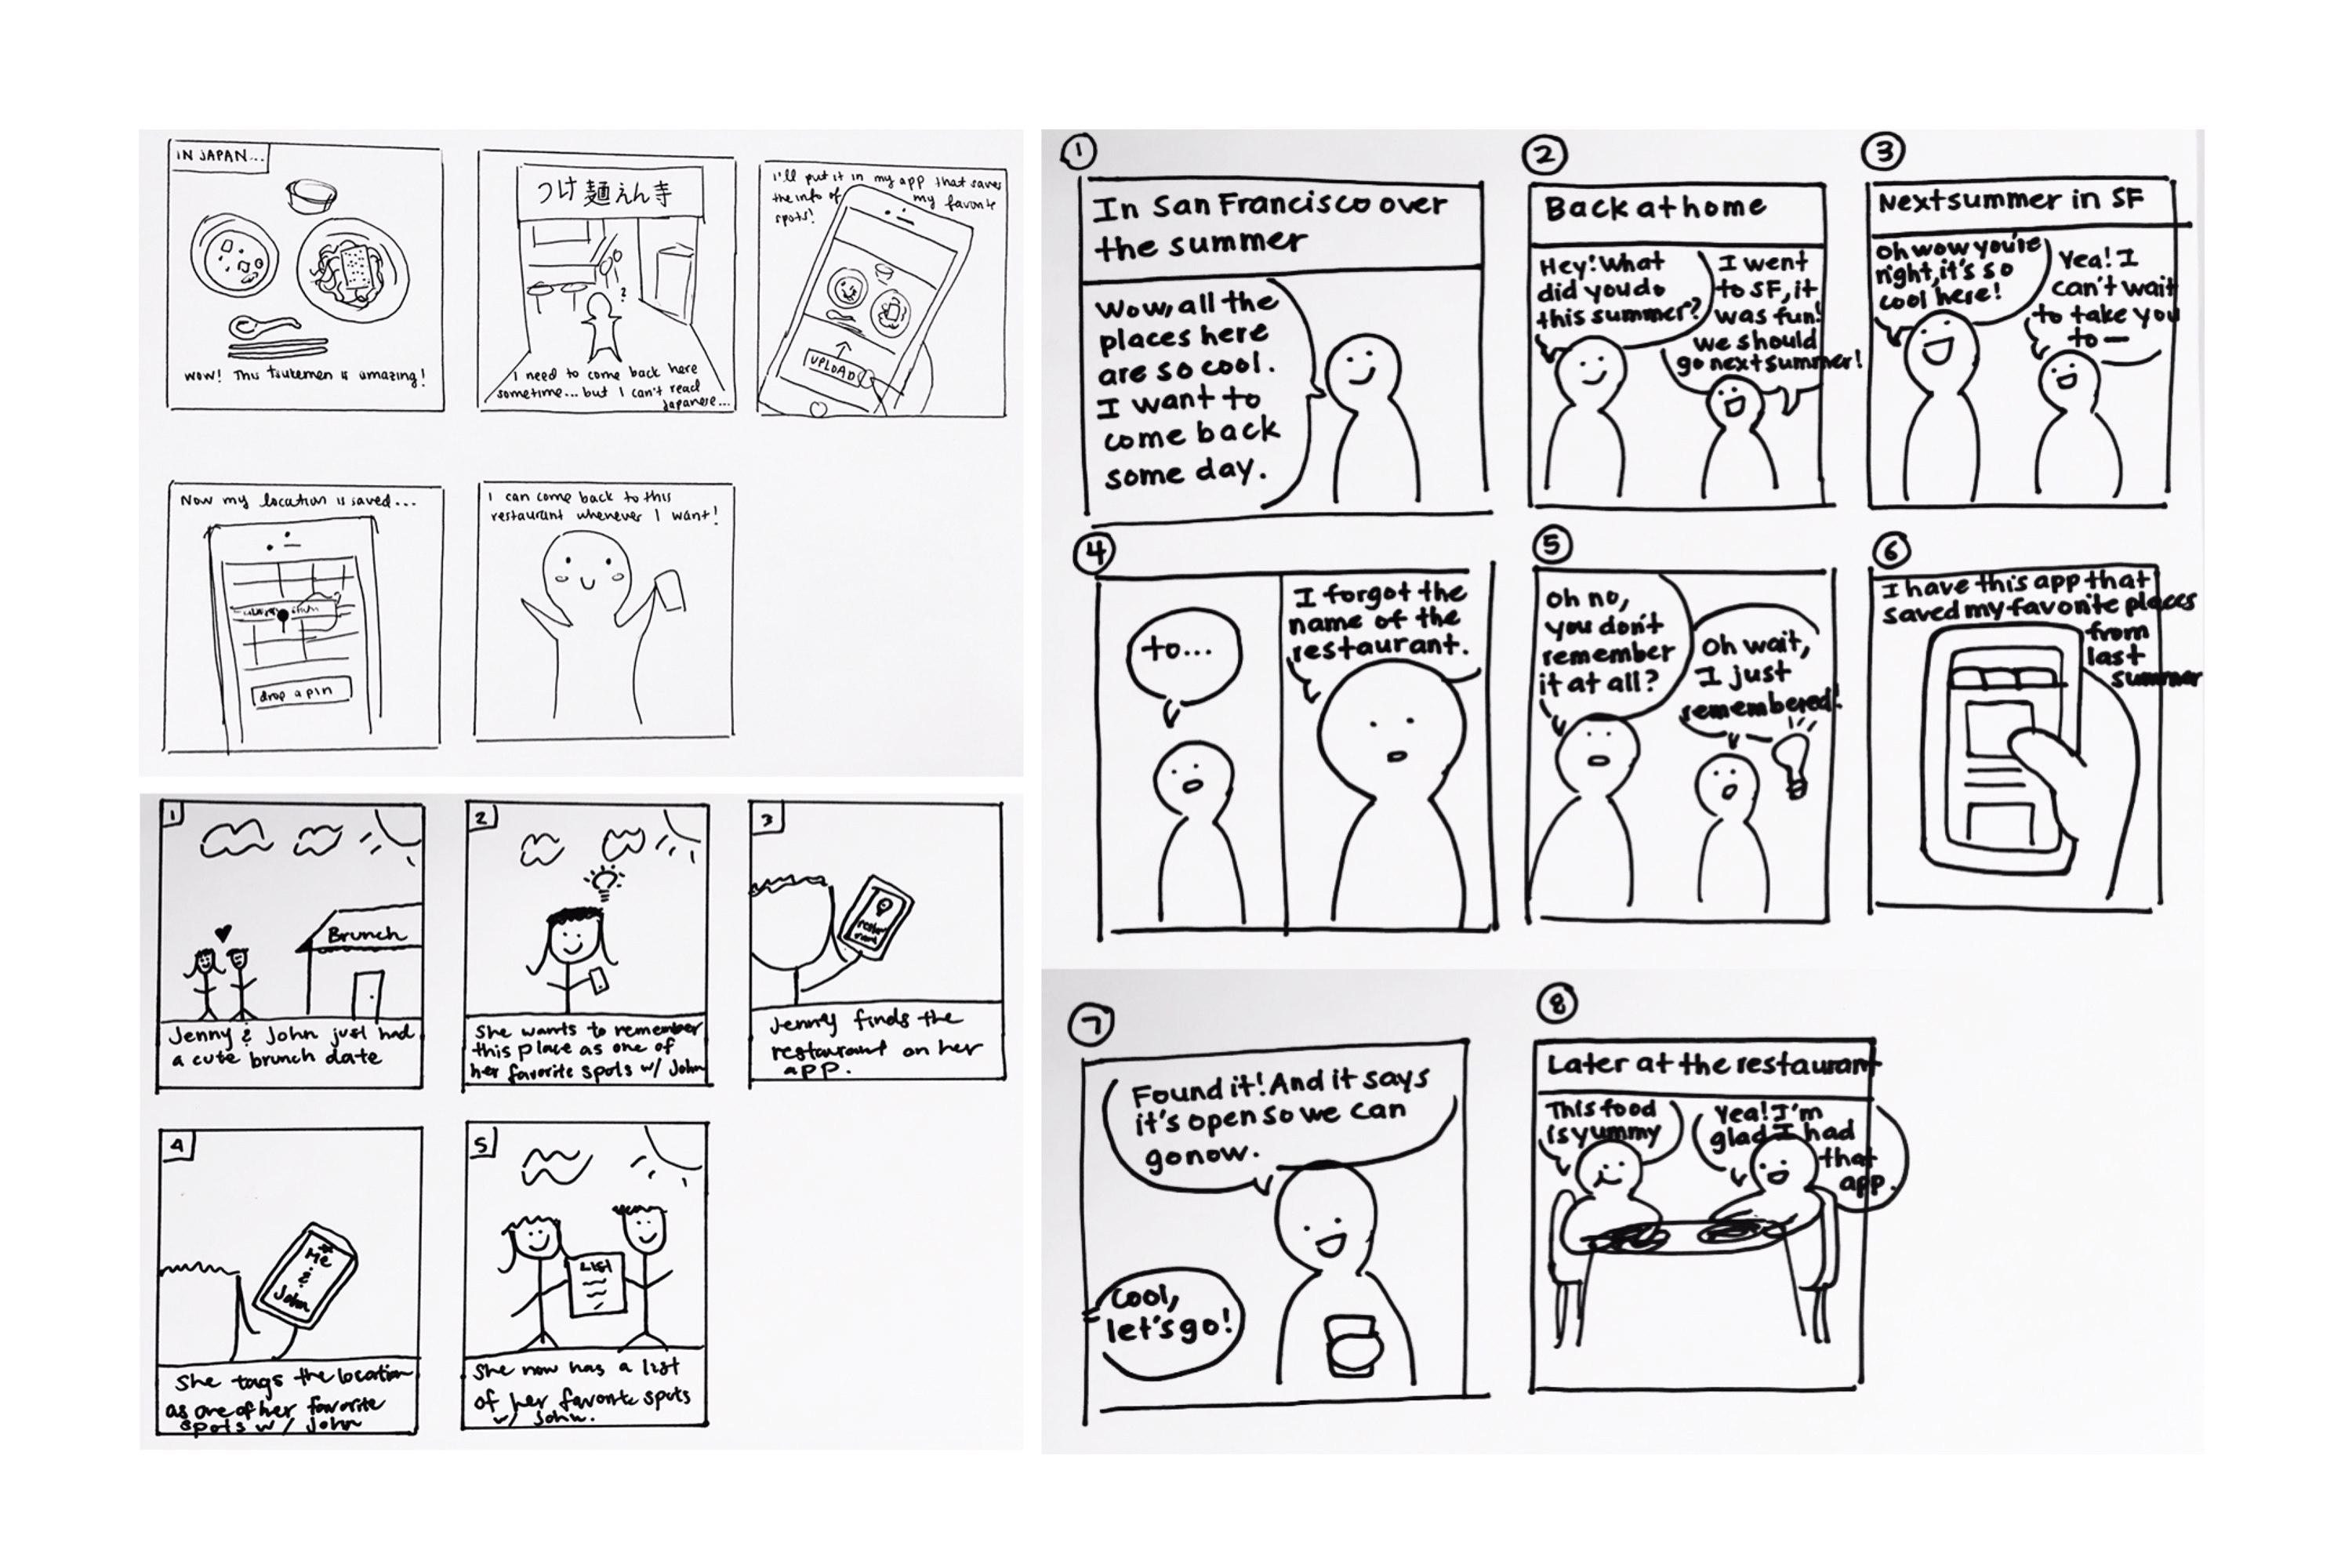 IN JAPAN...
WOW! This tsukemen is amazing!
つけ麺えん寺
?
I need to come back here
sometime... but I can't read
Japanese...
I'll put it in my app that saves
the info of my favorite
spots!
UPLOAD
Now my location is saved...
drop a pin
I can come back to this
restaurant whenever I want!
1
Brunch
Jenny & John just had
a cute brunch date
2
She wants to remember
this place as one of
her favorite spots w/ John
3
Jenny finds the
restaurant on her
app.
4
Me
&
John
She tags the location
as one of her favorite
spots w/ John
5
LIST
She now has a list
of her favorite spots
w/ John.
1
In San Francisco over
the summer
Wow, all the
places here
are so cool.
I want to
come back
some day.
2
Back at home
Hey! What
did you do
this summer?
I went
to SF, it
was fun!
we should
go next summer!
3
Next summer in SF
Oh wow you're
right, it's so
cool here!
Yea! I
can't wait
to take you
to—
4
to...
I forgot the
name of the
restaurant.
5
Oh no,
you don't
remember
it at all?
Oh wait,
I just
remembered!
6
I have this app that
saved my favorite places
from
last
summer
7
Found it! And it says
it's open so we can
go now.
Cool,
let's go!
8
Later at the restaurant
This food
is yummy
Yea! I'm
glad I had
that
app.